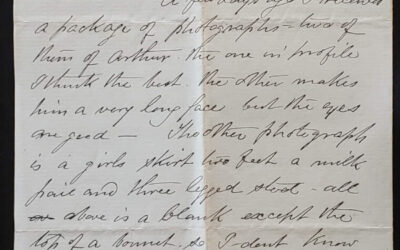 A few days ago I received
a package of photographs - two of
them of Arthur. the one in profile
I think the best. the other makes
him a very long face but the eyes
are good — The other photograph
is a girls skirt two feet a milk
pail and three legged stool - all
above is a blank except the
top of a bonnet. so I dont know